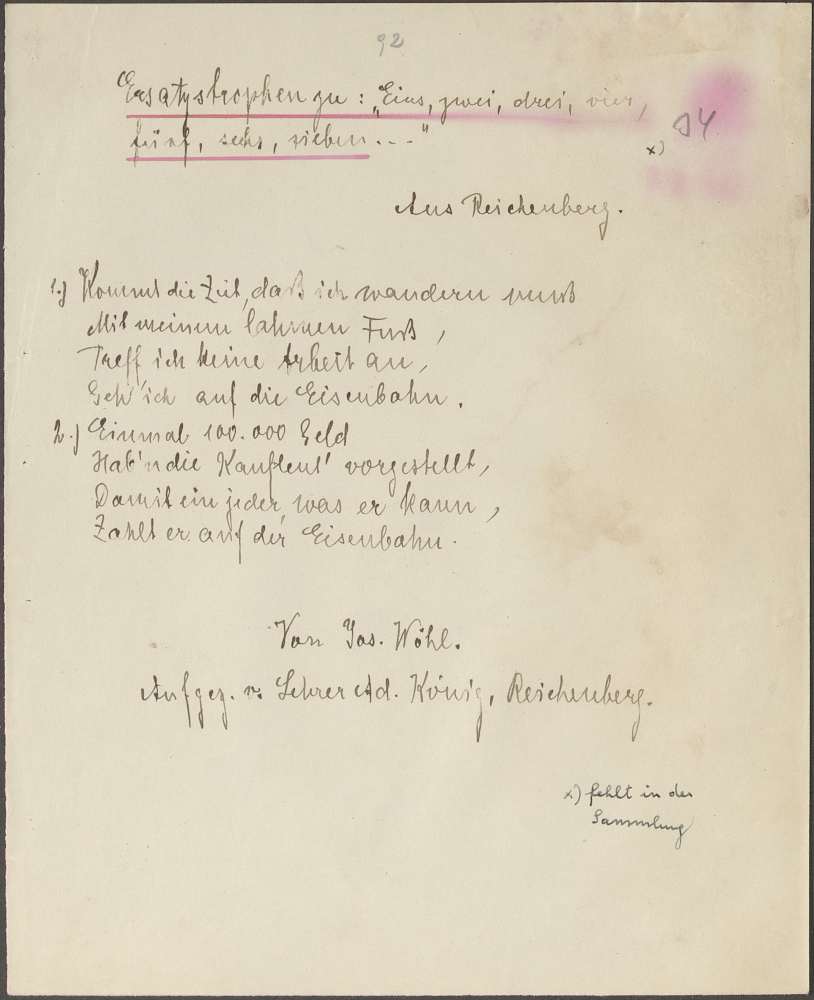 92
Ersatzstrophen zu: „Eins, zwei, drei, vier,
fünf, sechs, sieben..."
x)
Aus Reichenberg.
1.) Kommt die Zeit, daß ich wandern muß
Mit meinem lahmen Fuß,
Treff ich keine Arbeit an,
Geh' ich auf die Eisenbahn.
2.) Einmal 100.000 Geld
Hab'n die Kaufleut' vorgestellt,
Damit ein jeder, was er kann,
Zahlt er auf der Eisenbahn.
Von Jos. Wöhl.
Aufgez. v. Lehrer Ad. König, Reichenberg.
x) fehlt in der
Sammlung